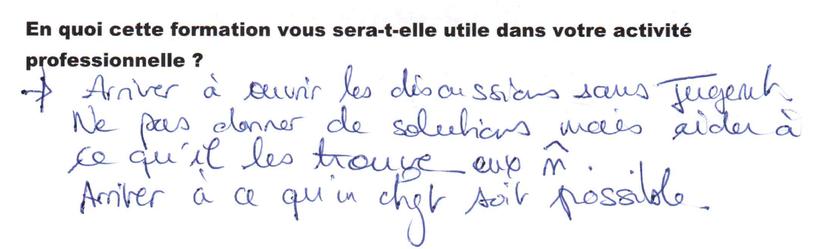 En quoi cette formation vous sera-t-elle utile dans votre activité
professionnelle ?
→ Arriver à ouvrir les discussions sans Jugemt.
Ne pas donner de solutions mais aider à
ce qu'il les trouve eux m̂.
Arriver à ce qu'un chgt soit possible.